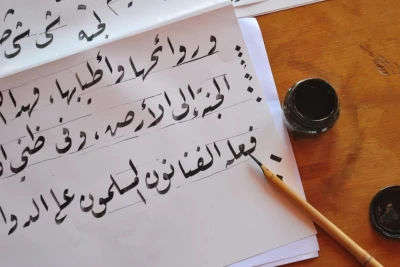 لجنة شى شى
وروائحها وأطيابها، فهذا
الجنة إلى الأرض، وفى ظنى
فعله الفنانون المسلمون على الدوا